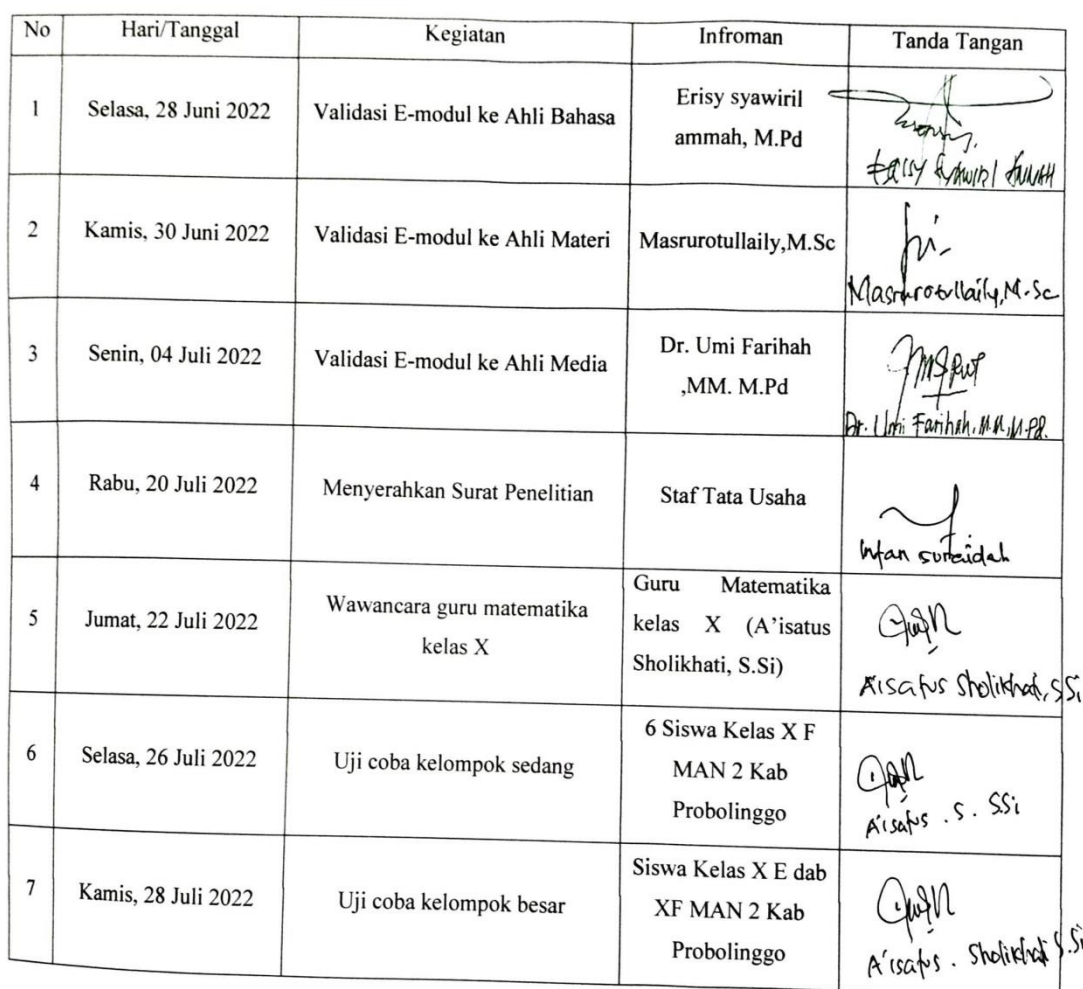 No Hari/Tanggal Kegiatan Infroman Tanda Tangan
1 Selasa, 28 Juni 2022 Validasi E-modul ke Ahli Bahasa Erisy syawiril
ammah, M.Pd
Erisy Syawiril Ammah
2 Kamis, 30 Juni 2022 Validasi E-modul ke Ahli Materi Masrurotullaily,M.Sc
Masrurotullaily, M.Sc
3 Senin, 04 Juli 2022 Validasi E-modul ke Ahli Media Dr. Umi Farihah
,MM. M.Pd
Dr. Umi Farihah, M.M, M.Pd.
4 Rabu, 20 Juli 2022 Menyerahkan Surat Penelitian Staf Tata Usaha
5 Jumat, 22 Juli 2022 Wawancara guru matematika
kelas X
Guru Matematika
kelas X (A'isatus
Sholikhati, S.Si)
A'isatus Sholikhati, S.Si
6 Selasa, 26 Juli 2022 Uji coba kelompok sedang 6 Siswa Kelas X F
MAN 2 Kab
Probolinggo
A'isatus . S . SSi
7 Kamis, 28 Juli 2022 Uji coba kelompok besar Siswa Kelas X E dab
XF MAN 2 Kab
Probolinggo
A'isatus . Sholikhati S.Si